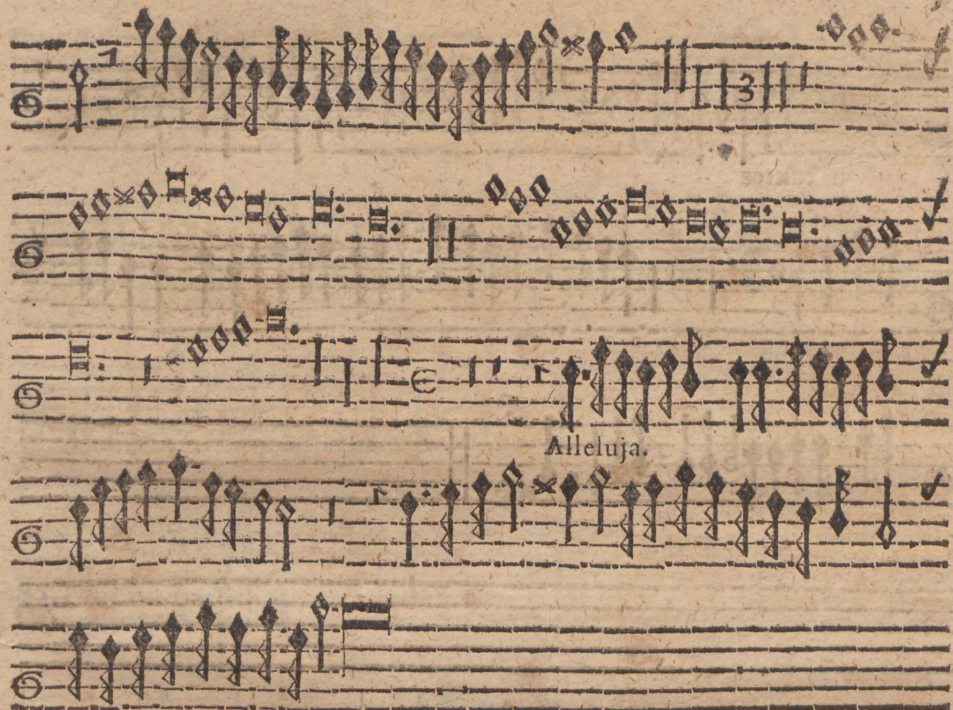 3
Alleluja.